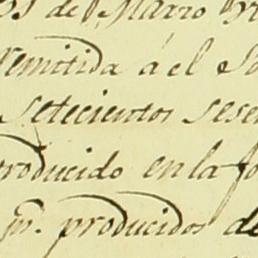 de Marzo
remitida á el
setecientos sese
producido en la fo
pr. producidos de